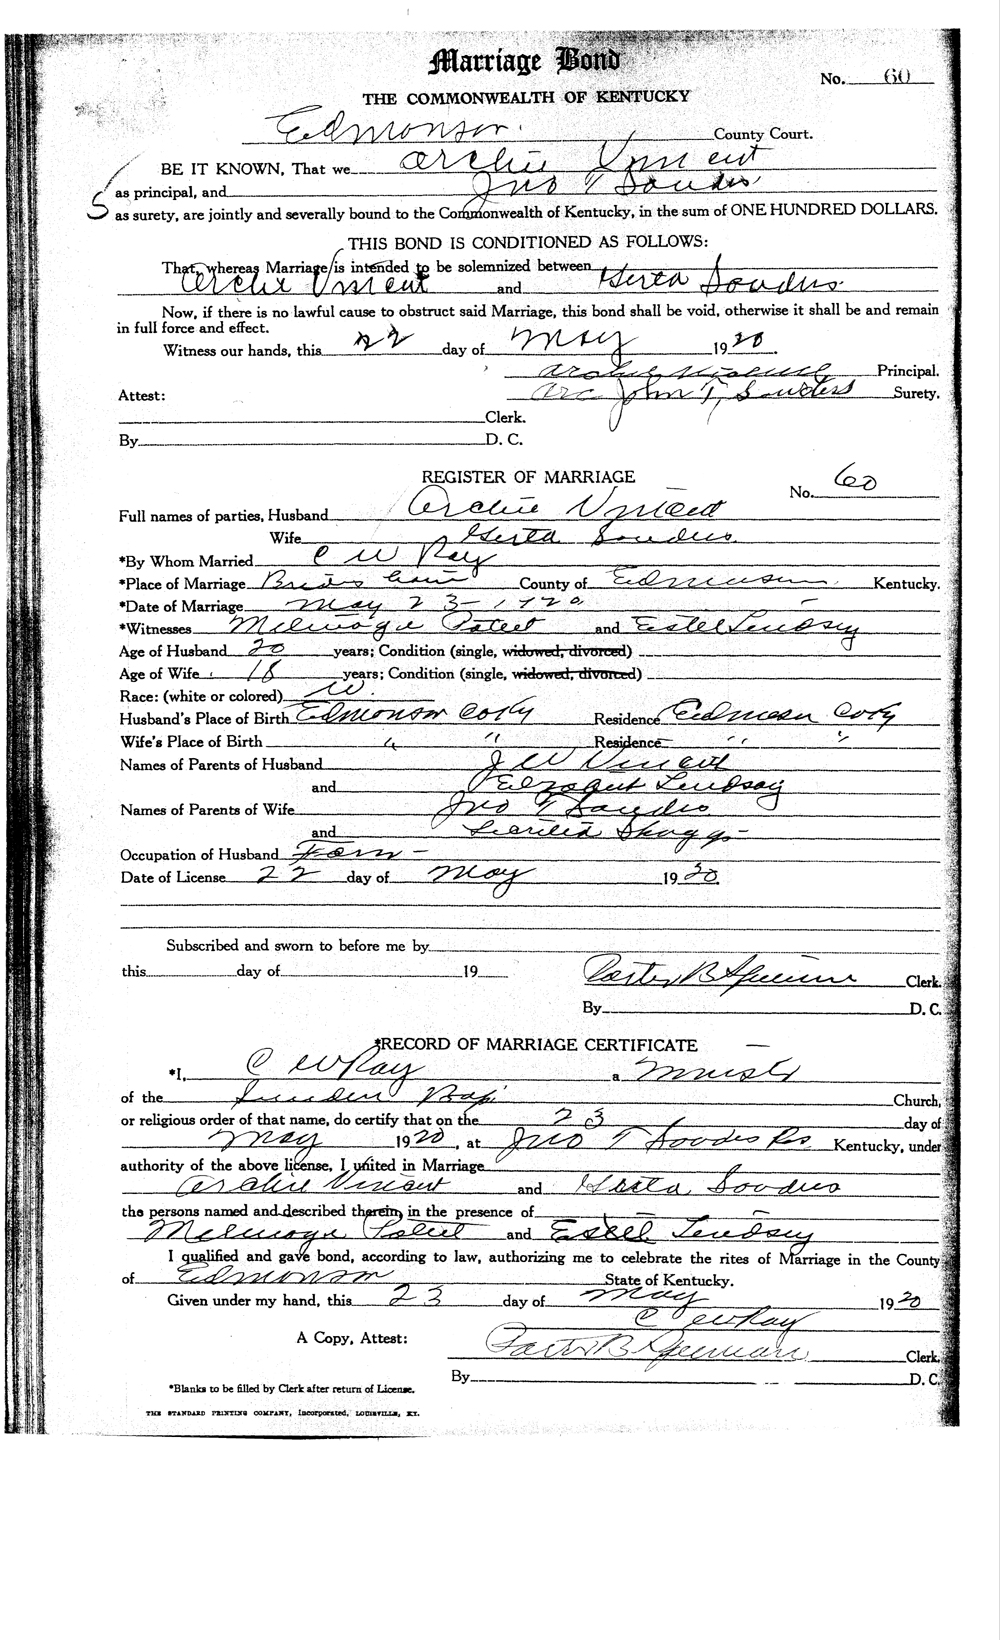 Marriage Bond
No. 60
THE COMMONWEALTH OF KENTUCKY
Edmonson County Court.
BE IT KNOWN, That we Archie Vincent
as principal, and Jno T Sanders
as surety, are jointly and severally bound to the Commonwealth of Kentucky, in the sum of ONE HUNDRED DOLLARS.
THIS BOND IS CONDITIONED AS FOLLOWS:
That, whereas Marriage is intended to be solemnized between
Archie Vincent and Sanders
Now, if there is no lawful cause to obstruct said Marriage, this bond shall be void, otherwise it shall be and remain
in full force and effect.
Witness our hands, this 22 day of May 1920.
Archie Vincent Principal.
Attest: John T. Sanders Surety.
Clerk.
By D. C.
REGISTER OF MARRIAGE
No. 60
Full names of parties, Husband Archie Vincent
Wife Sanders
*By Whom Married C W Ray
*Place of Marriage Brides County of Edmonson Kentucky.
*Date of Marriage May 23-1920
*Witnesses and Estel Lindsey
Age of Husband 20 years; Condition (single, widowed, divorced)
Age of Wife 18 years; Condition (single, widowed, divorced)
Race: (white or colored) W.
Husband's Place of Birth Edmonson Coty Residence Edmson Coty
Wife's Place of Birth " " Residence " "
Names of Parents of Husband J W Vincent
and Lindsay
Names of Parents of Wife Jno T Sanders
and Skaggs
Occupation of Husband Farm -
Date of License 22 day of May 1920.
Subscribed and sworn to before me by
this day of 19
Clerk.
By D. C.
*RECORD OF MARRIAGE CERTIFICATE
*I, C W Ray a Minister
of the Bap Church,
or religious order of that name, do certify that on the 23 day of
May 1920, at Jno T Sanders Res Kentucky, under
authority of the above license, I united in Marriage
Archie Vincent and Sanders
the persons named and described therein, in the presence of
and Estel Lindsey
I qualified and gave bond, according to law, authorizing me to celebrate the rites of Marriage in the County
of Edmonson State of Kentucky.
Given under my hand, this 23 day of May 1920
C W Ray
A Copy, Attest:
Clerk.
By D. C.
*Blanks to be filled by Clerk after return of License.
THE STANDARD PRINTING COMPANY, Incorporated, LOUISVILLE, KY.